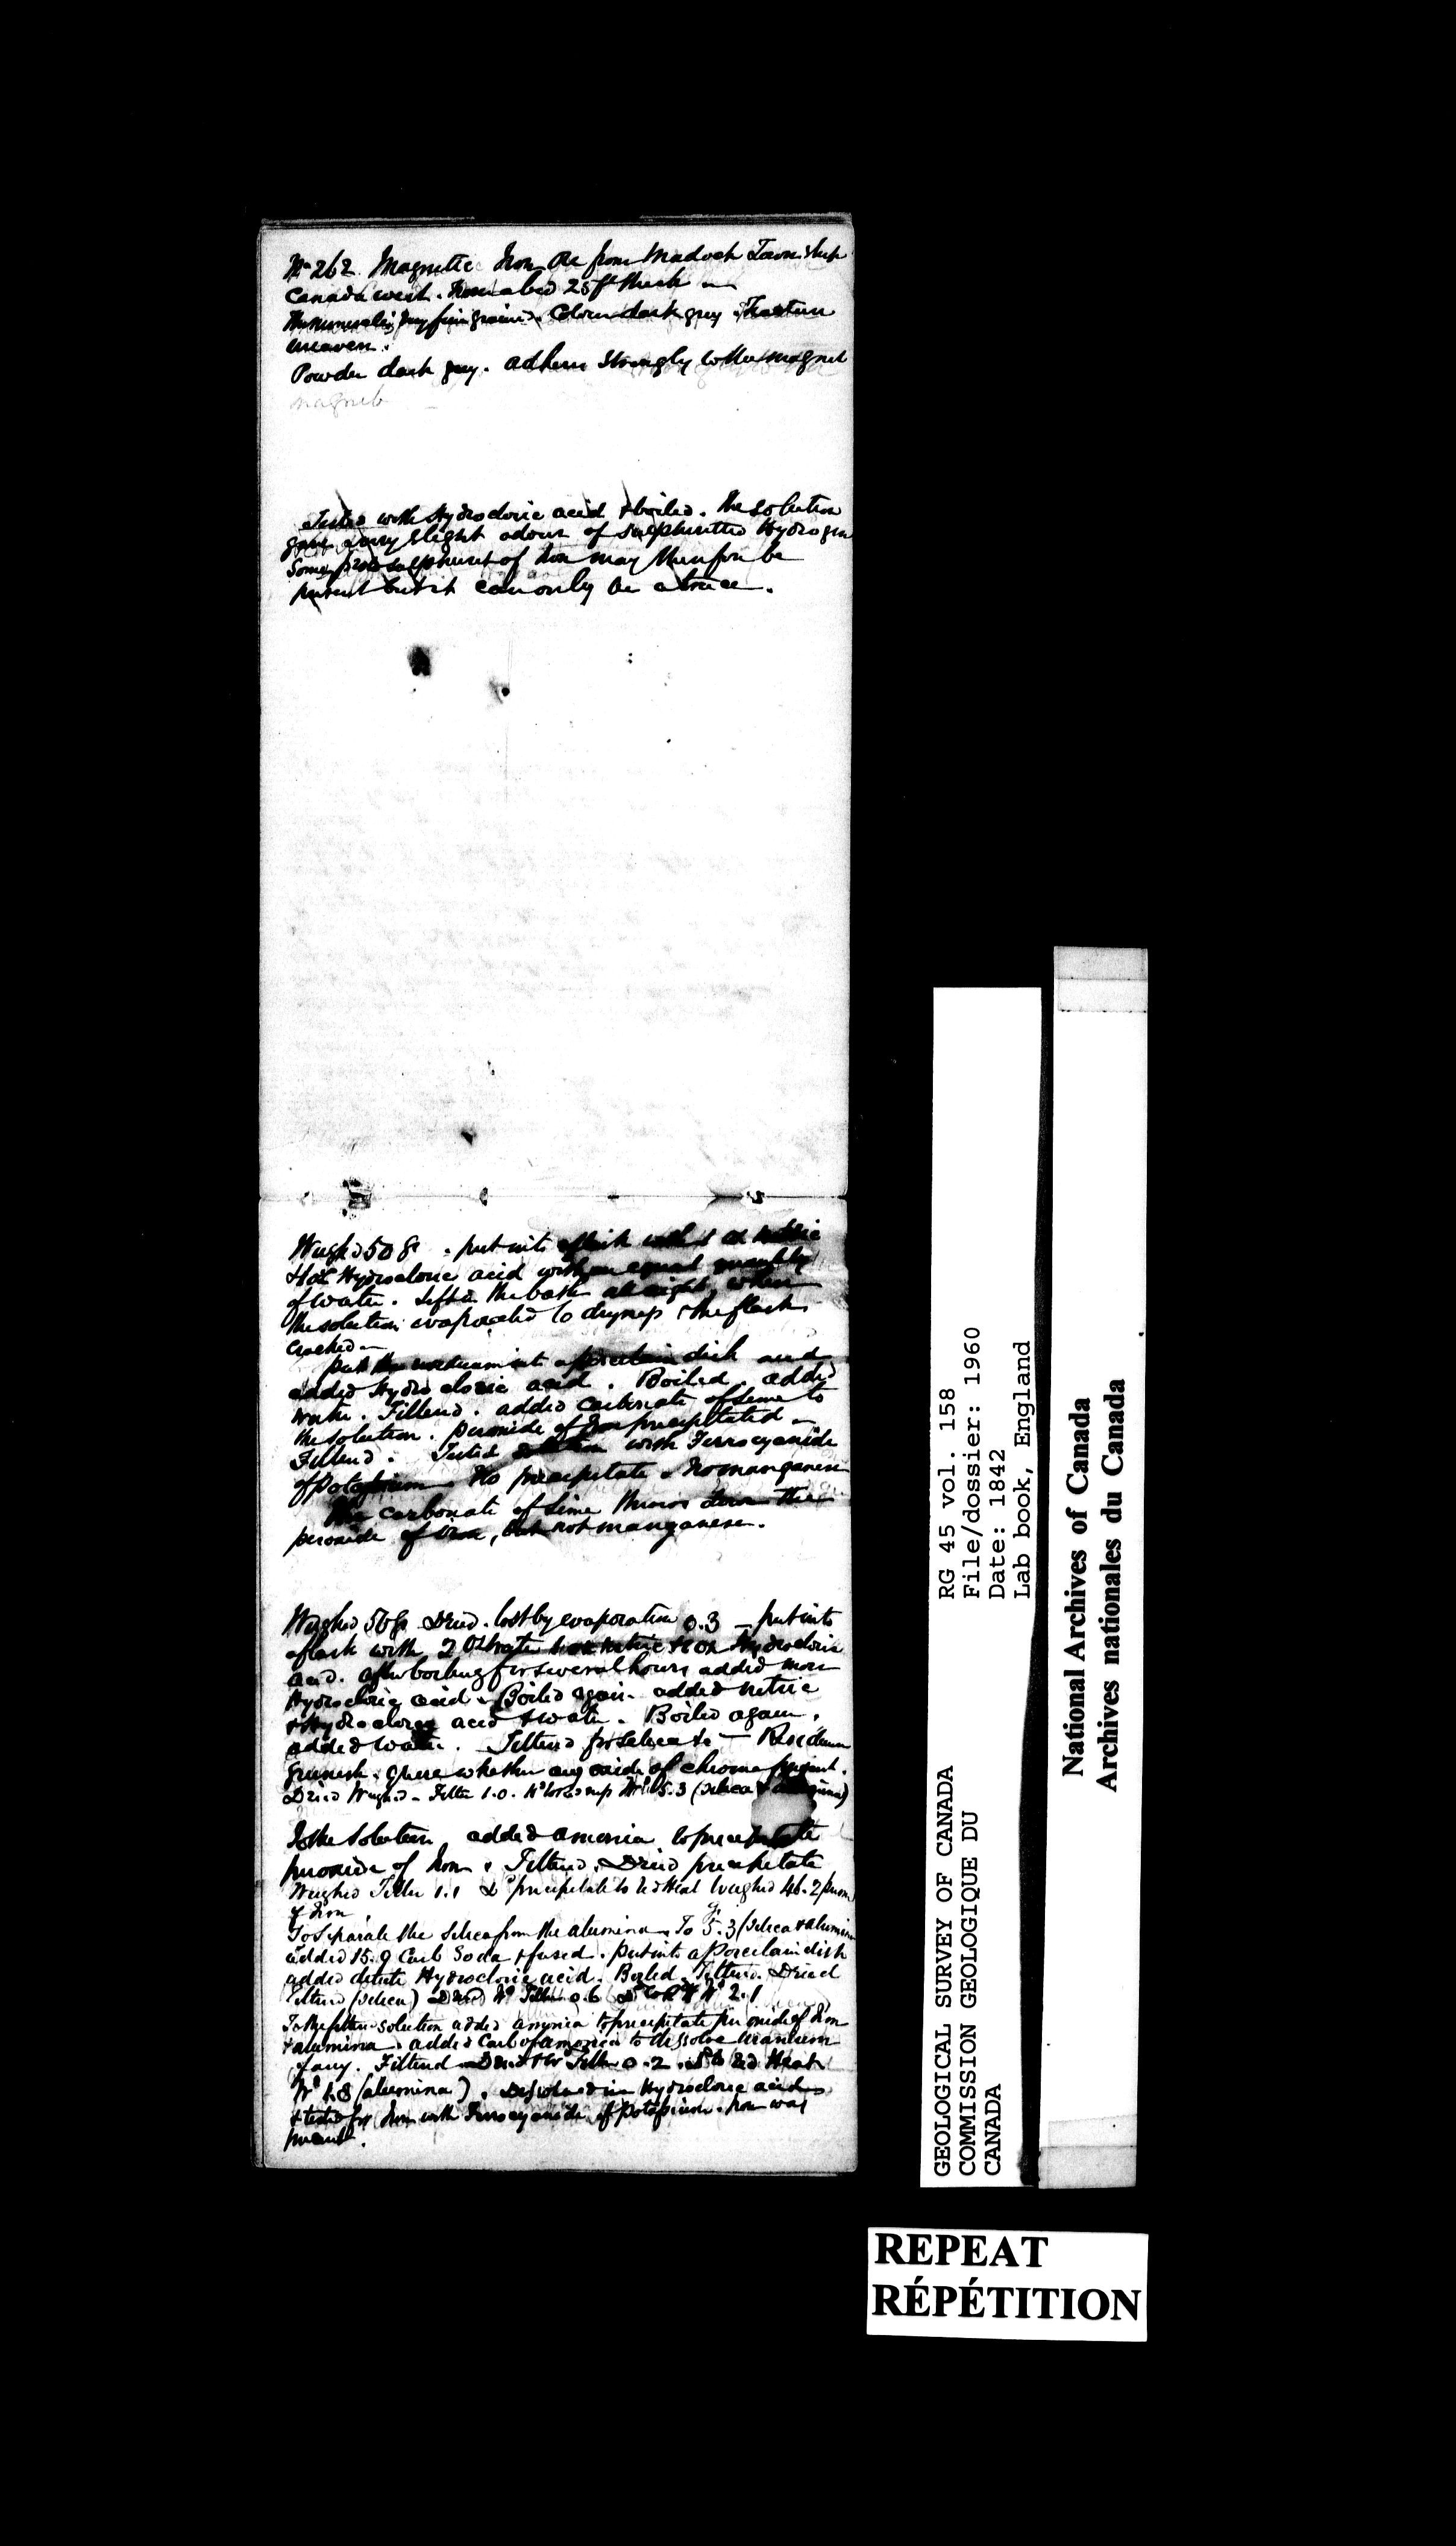 No 262 Magnetic Iron Ore from Madoch Township
Canada west. From a bed 25 ft thick
The mineral is fine grained. Colour dark grey. Fracture
uneven.
Powder dark grey. adheres strongly to the magnet
magnet
Tested with Hydrocloric acid & boiled. The solution
gave a very slight odour of sulphuretted Hydrogen
Some proto sulphuret of Iron may therefore be
present but it can only be a trace.
Weighed 50 gr. put into a flask with 1 oz Nitric
& 1 oz Hydrocloric acid with an equal quantity
of water. Left in the bath all night, when
the solution evaporated to dryness & the flask
cracked
put the residuum into a porcelain dish and
added Hydrocloric acid. Boiled. added
water. Filtered. added carbonate of Lime to
the solution. peroxide of Iron precipitated
Filtered. Tested solution with Ferrocyanide
of Potassium No precipitate. No manganese
The carbonate of Lime throws down the
peroxide of Iron, but not manganese.
Weighed 50 gr Dried. lost by evaporation 0.3 – put into
a flask with 2 oz water 1 oz nitric & 1 oz Hydrocloric
acid. after boiling for several hours added more
Hydrocloric acid. Boiled again. added nitric
& Hydrocloric acid & water. Boiled again.
added water. Filtered for silica &c – Residuum
greenish. quere whether any oxide of chrome present.
Dried Weighed – Filter 1.0. Wt 5.3 (silica & alumina)
To the solution added amonia to precipitate
peroxide of Iron. Filtered. Dried precipitate
Weighed Filter 1.1 Do precipitate to red Heat weighed 46.2 perox
of Iron
To separate the silica from the alumina. To 5.3 gr (silica & alumina
added 15.9 Carb Soda & fused. put into a Porcelain dish
added dilute Hydrocloric acid. Boiled. Filtered. Dried
Filtered (silica) Dried Wd Filter 0.6 Do to R H Wd 2.1
To the filter solution added amonia to precipitate peroxide of Iron
& alumina. added Carb of amonia to dissolve Uranium
if any. Filtered Dried & Wd Filter 0.2. Do to Red Heat
Wd 1.8 (alumina). Dissolved in Hydrocloric acid
& tested for Iron with Ferrocyanide of Potassium. Iron was
present.
GEOLOGICAL SURVEY OF CANADA
COMMISSION GEOLOGIQUE DU
CANADA
RG 45 vol. 158
File/dossier: 1960
Date: 1842
Lab book, England
National Archives of Canada
Archives nationales du Canada
REPEAT
RÉPÉTITION